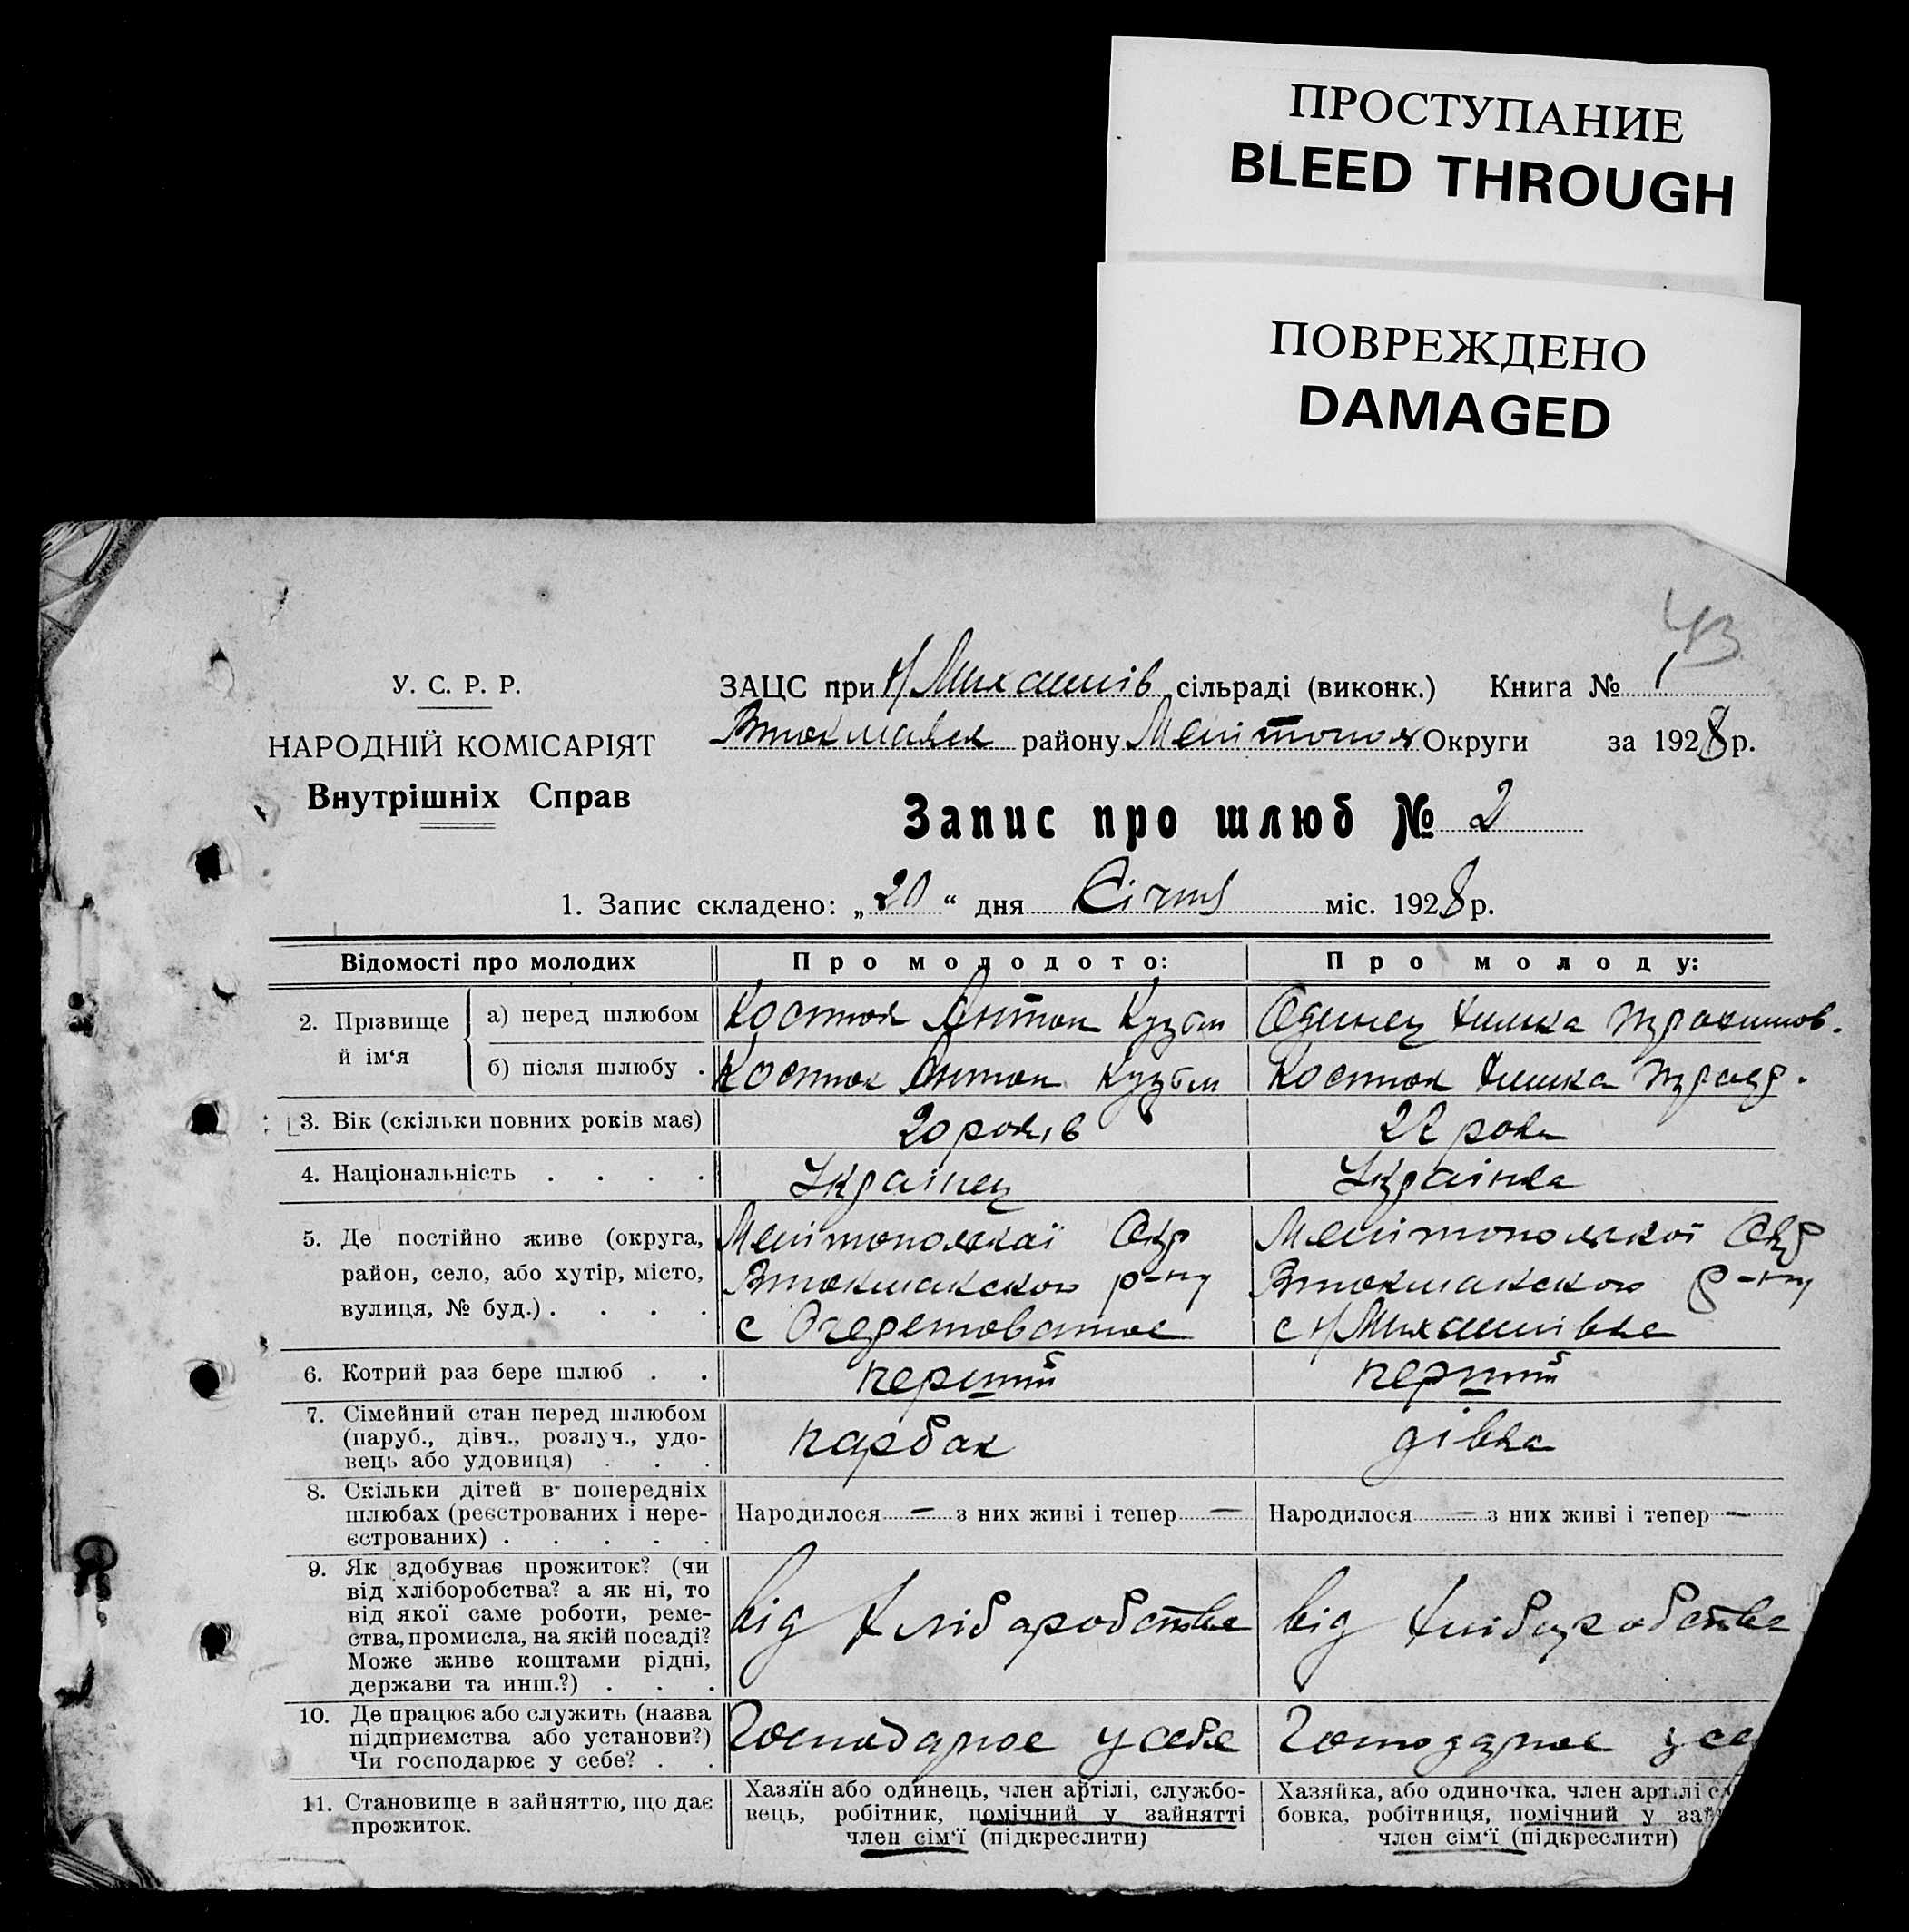 ПРОСТУПАНИЕ
BLEED THROUGH
ПОВРЕЖДЕНО
DAMAGED
43
У. С. Р. Р.
НАРОДНІЙ КОМІСАРІЯТ
Внутрішніх Справ
ЗАЦС при Н/Михайлів сільраді (виконк.) Книга № 1
Втокмакск району Мелітопол Округи за 1928 р.
Запис про шлюб № 2
1. Запис складено: „20“ дня Січня міс. 1928 р.
Відомості про молодих
Про молодото:
Про молоду:
2. Прізвище й ім‘я
а) перед шлюбом
Костюк Антон Кузьм
Одинец
б) після шлюбу .
Костюк Антон Кузьм
Костюк
3. Вік (скільки повних років має)
20 років
22 роки
4. Національність . . . .
Українец
Українка
5. Де постійно живе (округа,
район, село, або хутір, місто,
вулиця, № буд.) . . . .
Мелітопольскаї Окр
Втокмакского р-ну
с
Мелітопольскої Окр
Втокмакского р-ну
с Н/Михайлівке
6. Котрий раз бере шлюб . .
перший
перший
7. Сімейний стан перед шлюбом
(паруб., дівч., розлуч., удо-
вець або удовиця) . . .
парбак
дівка
8. Скільки дітей в попередніх
шлюбах (реєстрованих і нере-
єстрованих) . . . . .
Народилося — з них живі і тепер —
Народилося — з них живі і тепер —
9. Як здобуває прожиток? (чи
від хліборобства? а як ні, то
від якої саме роботи, реме-
ства, промисла, на якій посаді?
Може живе коштами рідні,
держави та инш.?) . . .
від хліборобства
від хліборобства
10. Де працює або служить (назва
підприємства або установи?)
Чи господарює у себе? . .
Господарює у себе
Господарює у се
11. Становище в зайняттю, що дає
прожиток.
Хазяїн або одинець, член артілі, службо-
вець, робітник, помічний у зайнятті
член сім‘ї (підкреслити)
Хазяйка, або одиночка, член артілі сл
бовка, робітниця, помічний у зай
член сім‘ї (підкреслити)